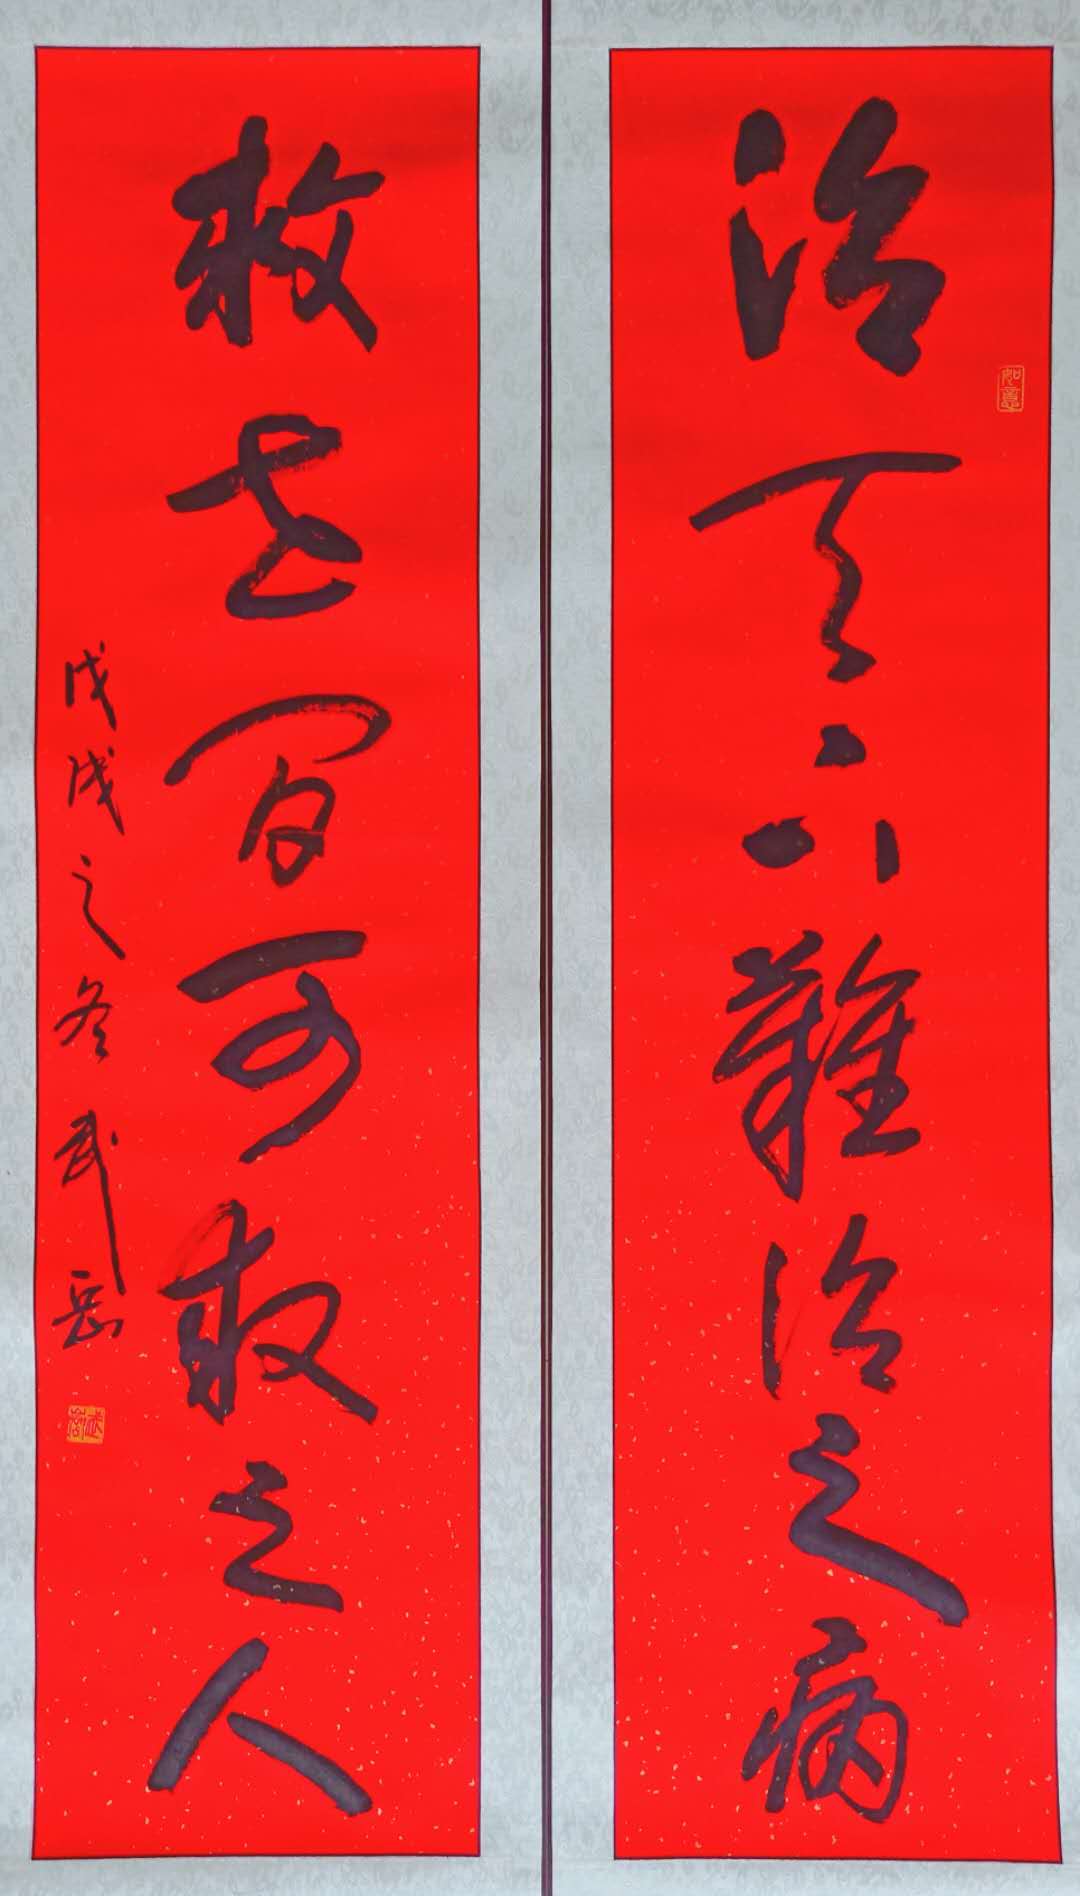 治天下難治之病
如意
救世间可救之人
戊戌之冬武岳